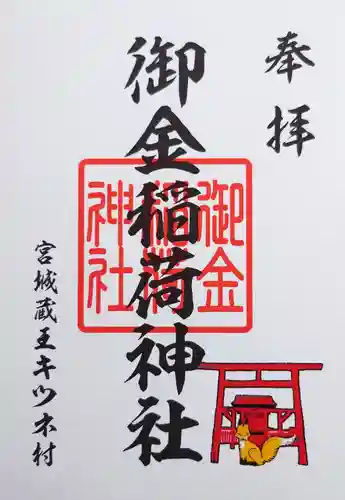 奉拝
御金稲荷神社
御金
稲荷
神社
宮城蔵王キツネ村